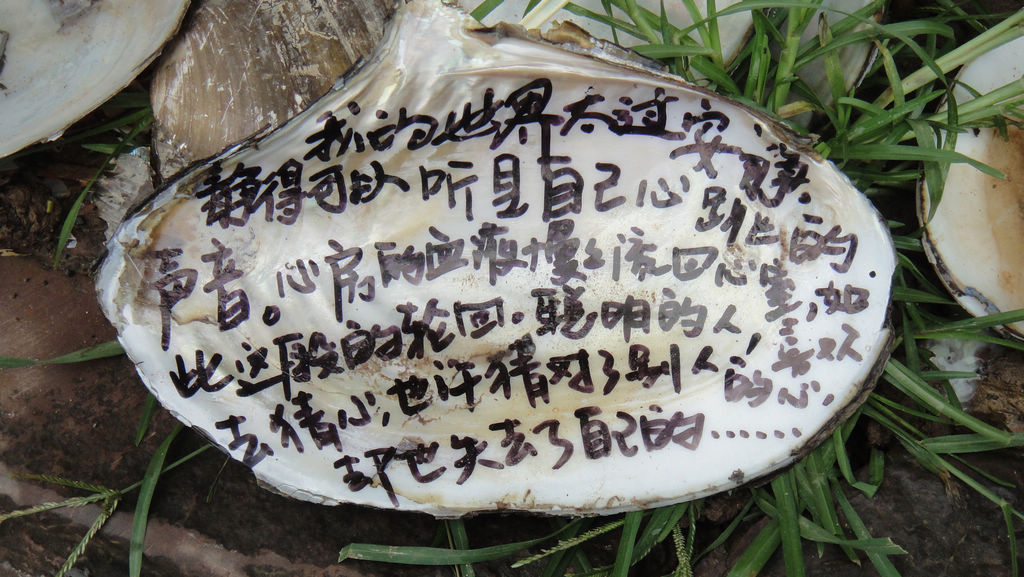 我的世界太过安静.
静得可以听见自己心跳的
声音。心房的血液慢々流回心室,如
此这般的轮回.聪明的人,喜欢
去猜心,也许猜对了别人的心.
却也失去了自己的……